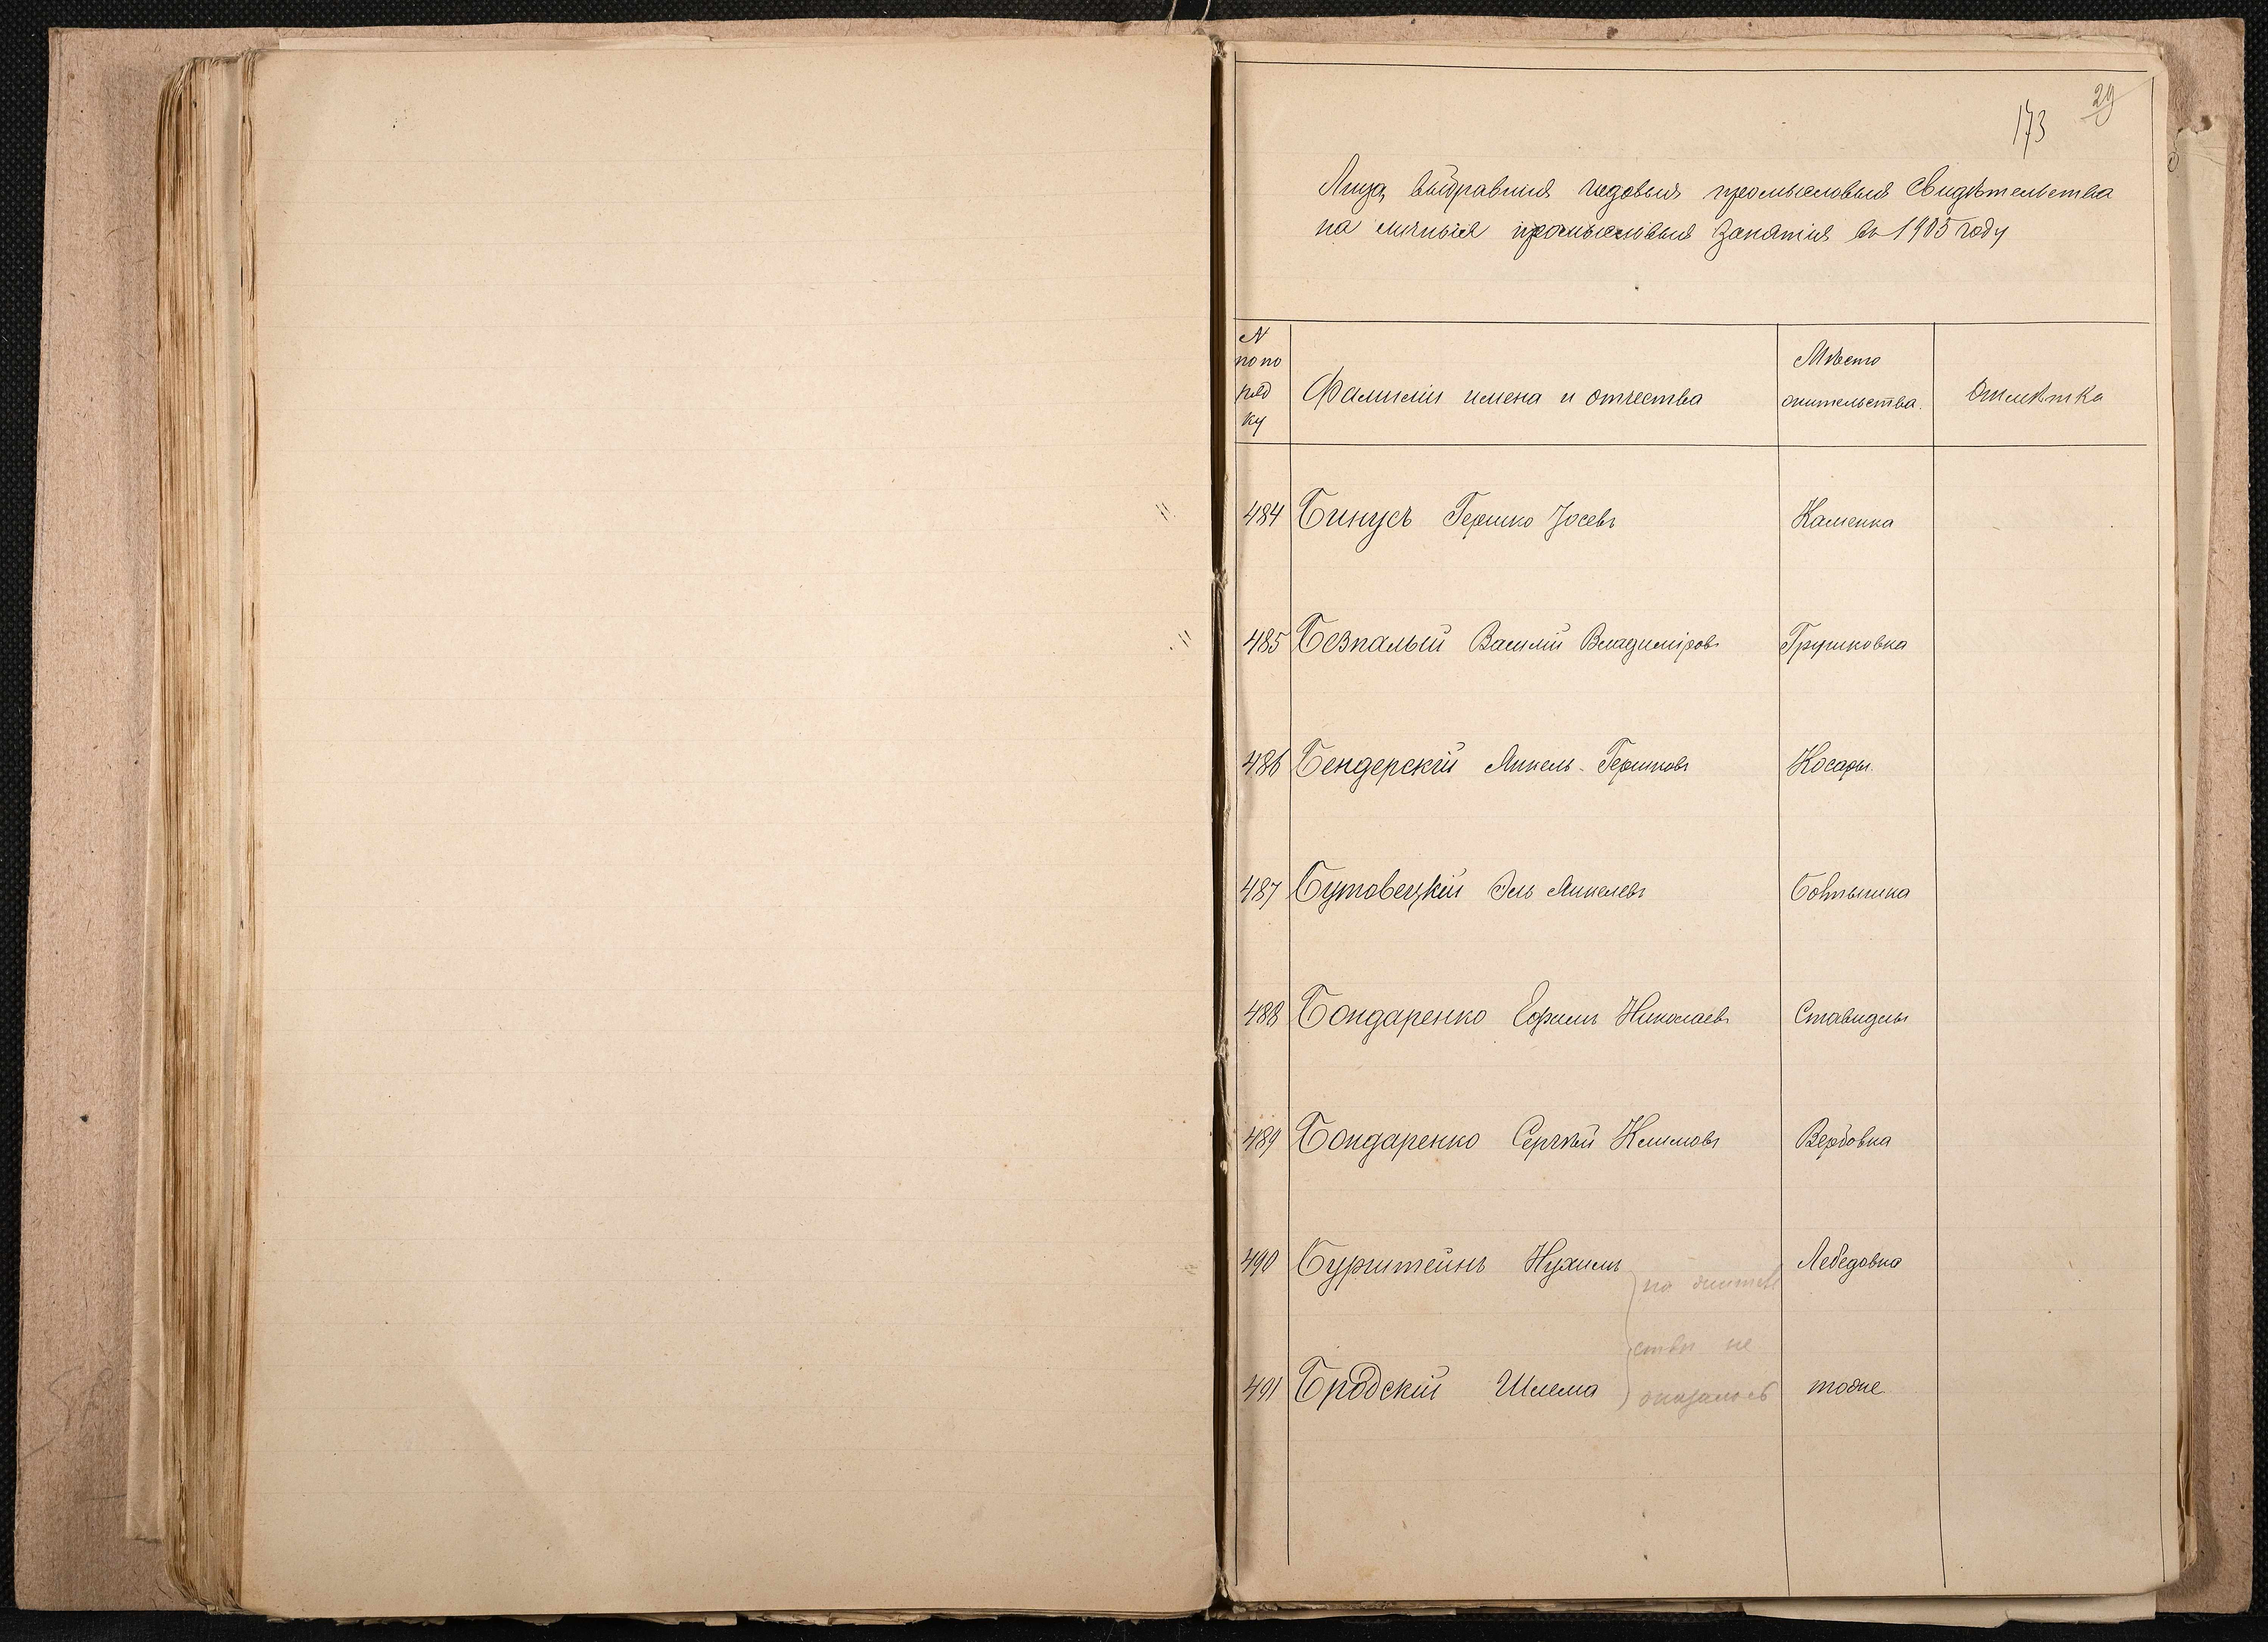 29
173
Лица, выбравшія годовыя промысловыя Свидѣтельства
на личныя промысловыя занятія въ 1905 году
N
по по
ряд
ку
Фамиліи имена и отчества
Мѣсто
жительства.
Отмѣтка
484 Бинусъ Гершко Іосевъ Каменка
485 Безпалый Василій Владиміровъ Грушковка
486 Бендерскій Янкель-Гершковъ Косары.
487 Бутовецкій Эль Янкелевъ Бовтышка
488 Бондаренко Ефимъ Николаевъ Ставидлы
489 Бондаренко Сергѣй Климовъ Вербовка
490 Бурштейнъ Нухимъ Лебедовка
по жительс
ству не
оказалось
491 Бродскій Шлема тоже